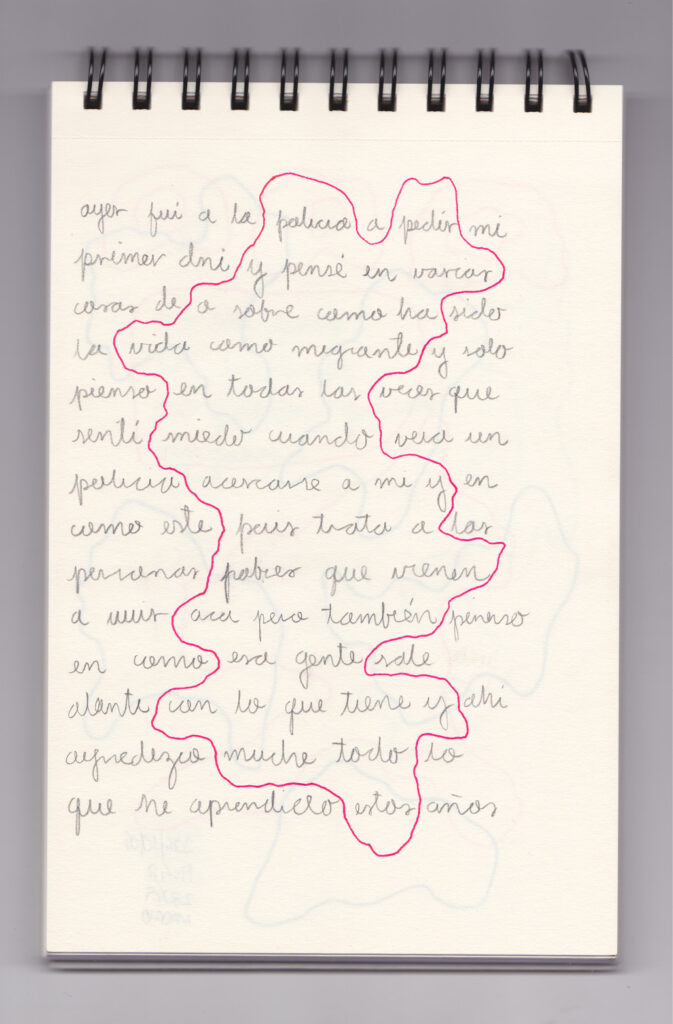 ayer fui a la policia a pedir mi
primer dni y pensé en varias
cosas de o sobre como ha sido
la vida como migrante y solo
pienso en todas las veces que
sentí miedo cuando veia un
policia acercarse a mi y en
como este pais trata a las
personas pobres que vienen
a vivir aca pero también pienso
en como esa gente sale
alante con lo que tiene y ahi
agredezco mucho todo lo
que he aprendido estos años